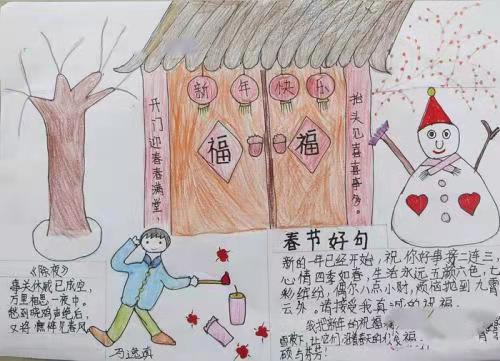 新年快乐
开门迎春春满堂,
抬头见喜喜事多。
福
福
《除夜》
事关休戚已成空,
万里相思一夜中。
愁到晓鸡声绝后,
又将憔悴见春风
春节好句
新的一年已经开始,祝你好事接二连三,
心情四季如春,生活永远五颜六色,七
彩缤纷,偶尔八点小时,烦恼抛到九霄
云外。请接受我真诚的祝福。
我把新年的祝福